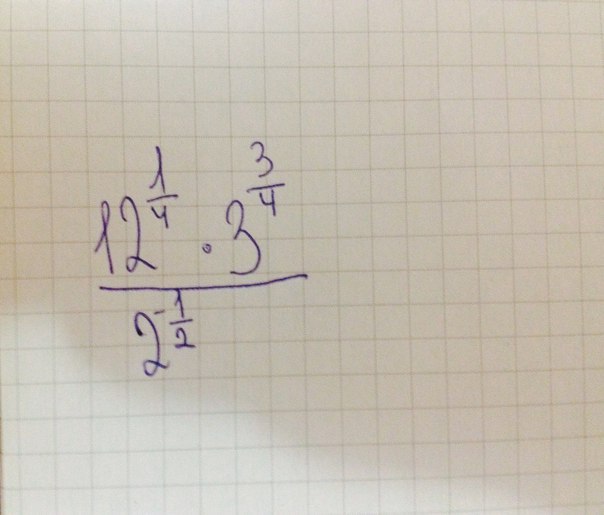 12^{\frac{1}{4}} · 3^{\frac{3}{4}}
2^{-\frac{1}{2}}